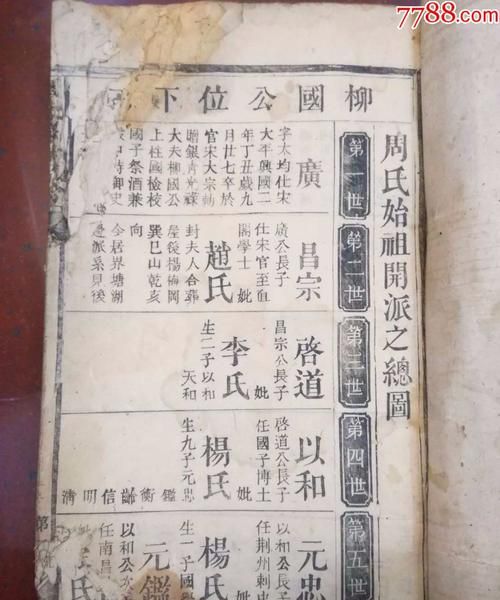 7788.com
周氏始祖開派之總圖
柳國公位下
第一世
廣
字太均仕宋
大平興國二
年丁丑歲九
月廿七卒於
官宋大宗勅
贈銀青光祿
大夫柳國公
上柱國檢校
國子祭酒兼
侍御史
第二世
昌宗
廣公長子
仕宋官至直
閣學士 妣
趙氏
封夫人合葬
屋後楊梅岡
巽巳山乾亥
向
今居界塘湖
之派系見後
第三世
啓道
昌宗公長子
妣
李氏
生二子以和
天和
第四世
以和
啓道公長子
任國子博士
妣
楊氏
生九子元忠
鑑衡 信明清
第五世
元忠
以和公長子
任荆州刺史
妣
楊氏
生一子國
元鑑
以和公次
任南昌
氏
第